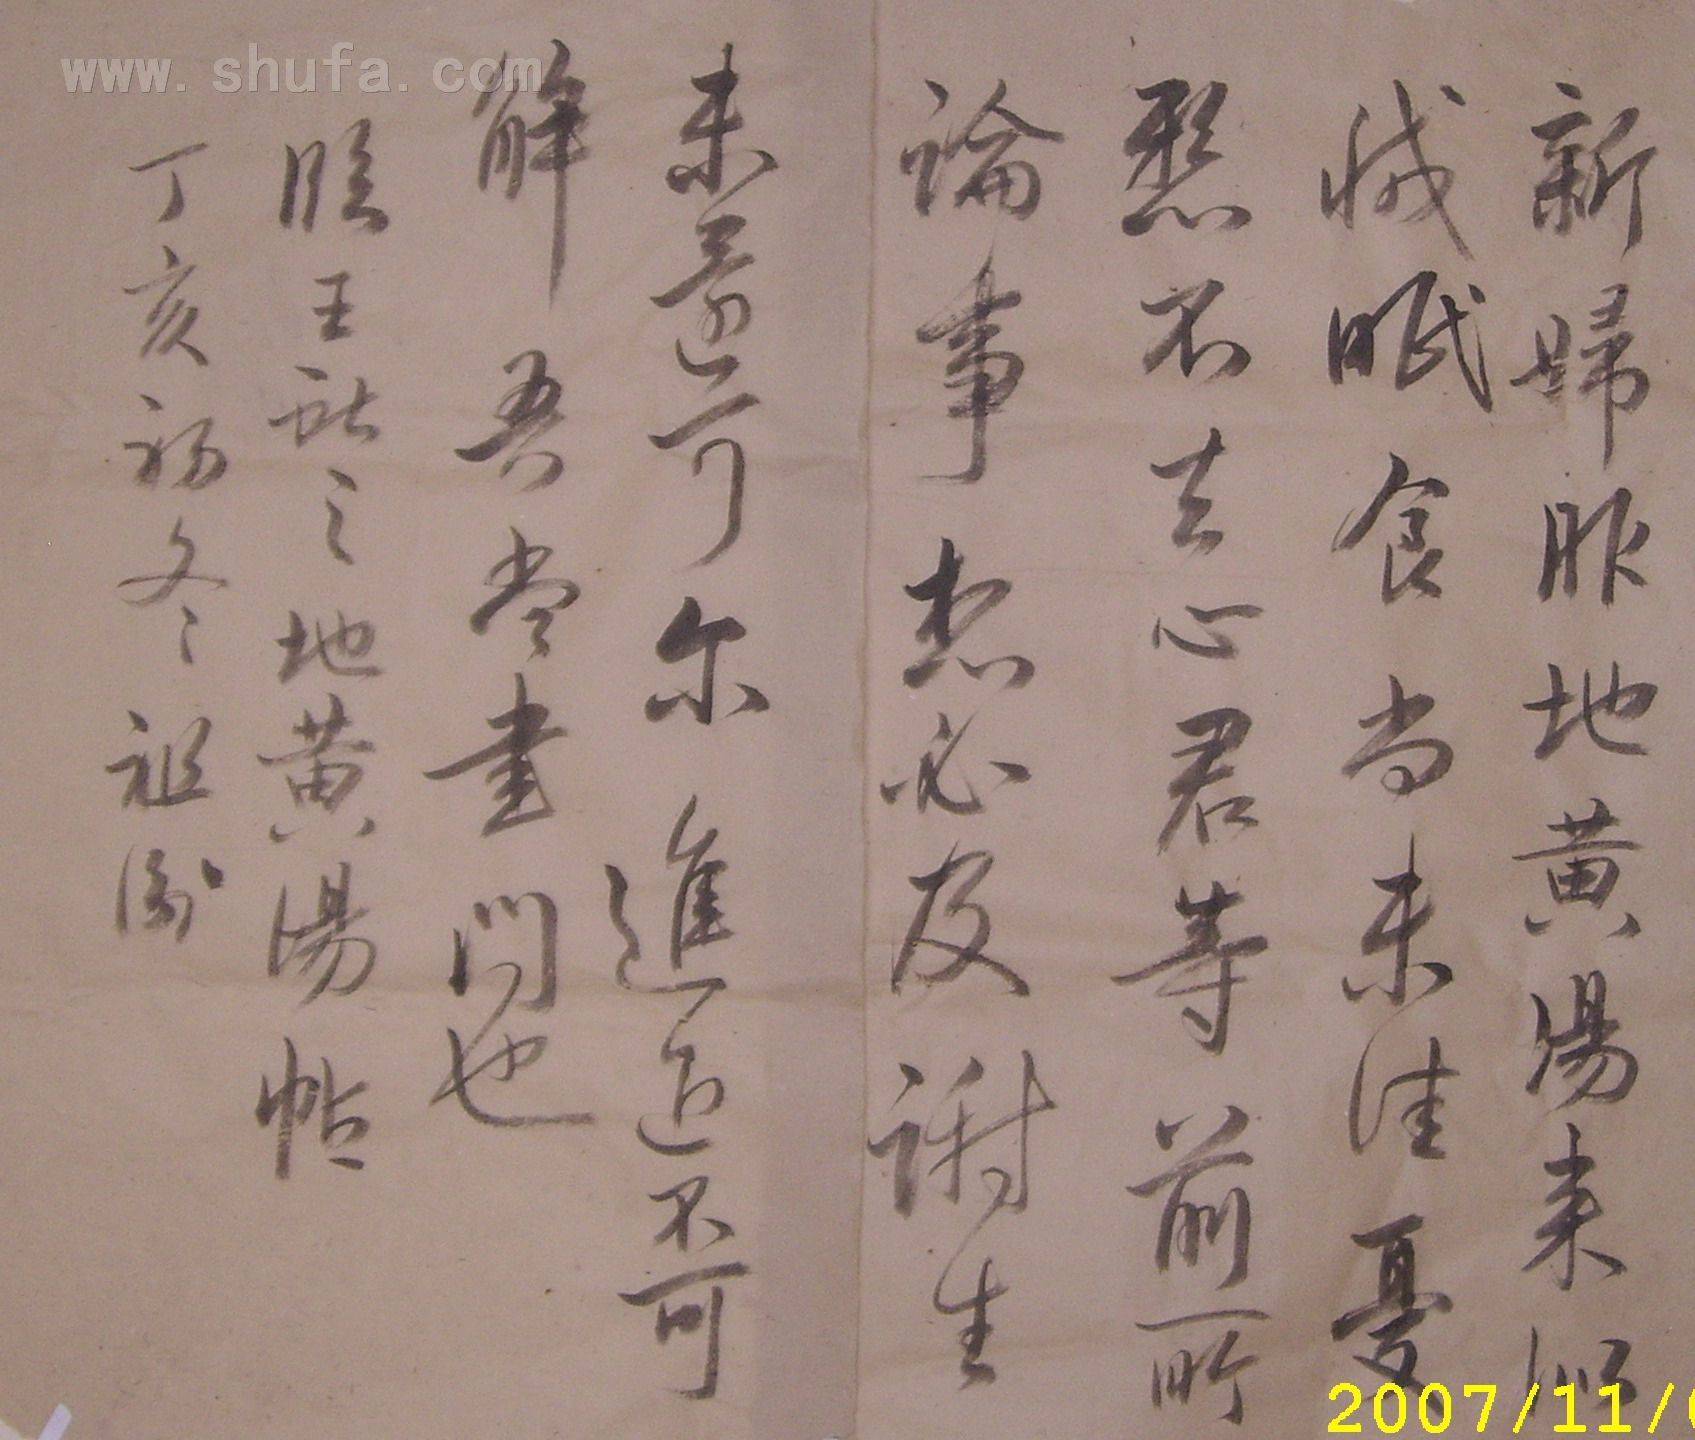 新婦服地黃湯來似
減眠食尚未佳憂
懸不去心君等前所
論事想必及謝生
未還可尔進退不可
解吾當書問也
臨王獻之地黃湯帖
丁亥初冬祖
www.shufa.com
2007/11/0